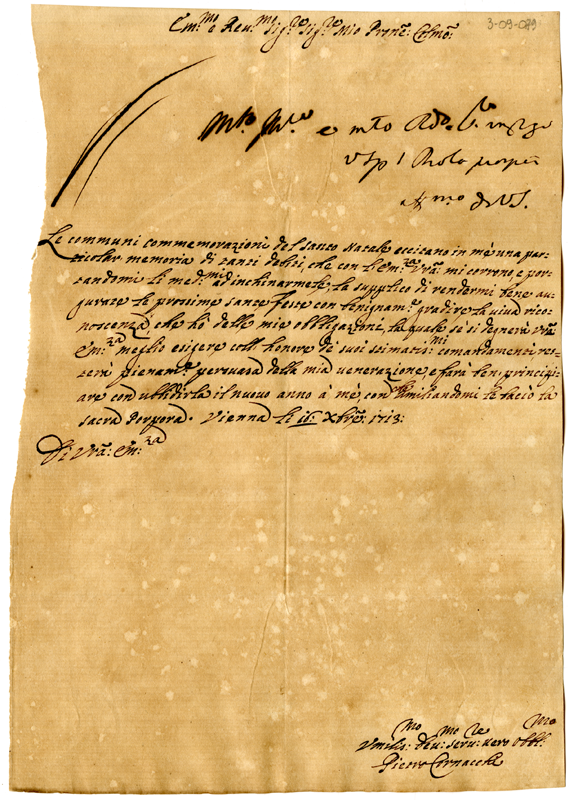 3-09-089
Em.mo e Reu.mo Sig.re Sig.re Mio Prone: Colmo:
e mto Rdo
Le communi commemorazioni del santo Natale eccitano in mè una par-
ticolar memoria di tanti debiti, che con l'Em.za Vrã: mi corrono, e por-
tandomi li med.mi ad inchinarmele, la supplico di rendermi bene au-
gurate le prossime sante feste con benignam.te gradire la uiua rico-
noscenza, che hò delle mie obbligazioni, la quale se si degnerà Vrã:
Em:za meglio esigere coll'honore de suoi stimatiss:mi comandamenti res-
terà pienam.te persuasa della mia venerazione, e farà ben principi-
are con ubbidirla il nuovo anno à mè, con che umiliandomi le bacio la
sacra Porpora. Vienna li 16: Xbre: 1713:
Di Vrã: Em:za
Umilis:mo deu:mo seru:re uero obbl:mo
Pietro Cornacchi